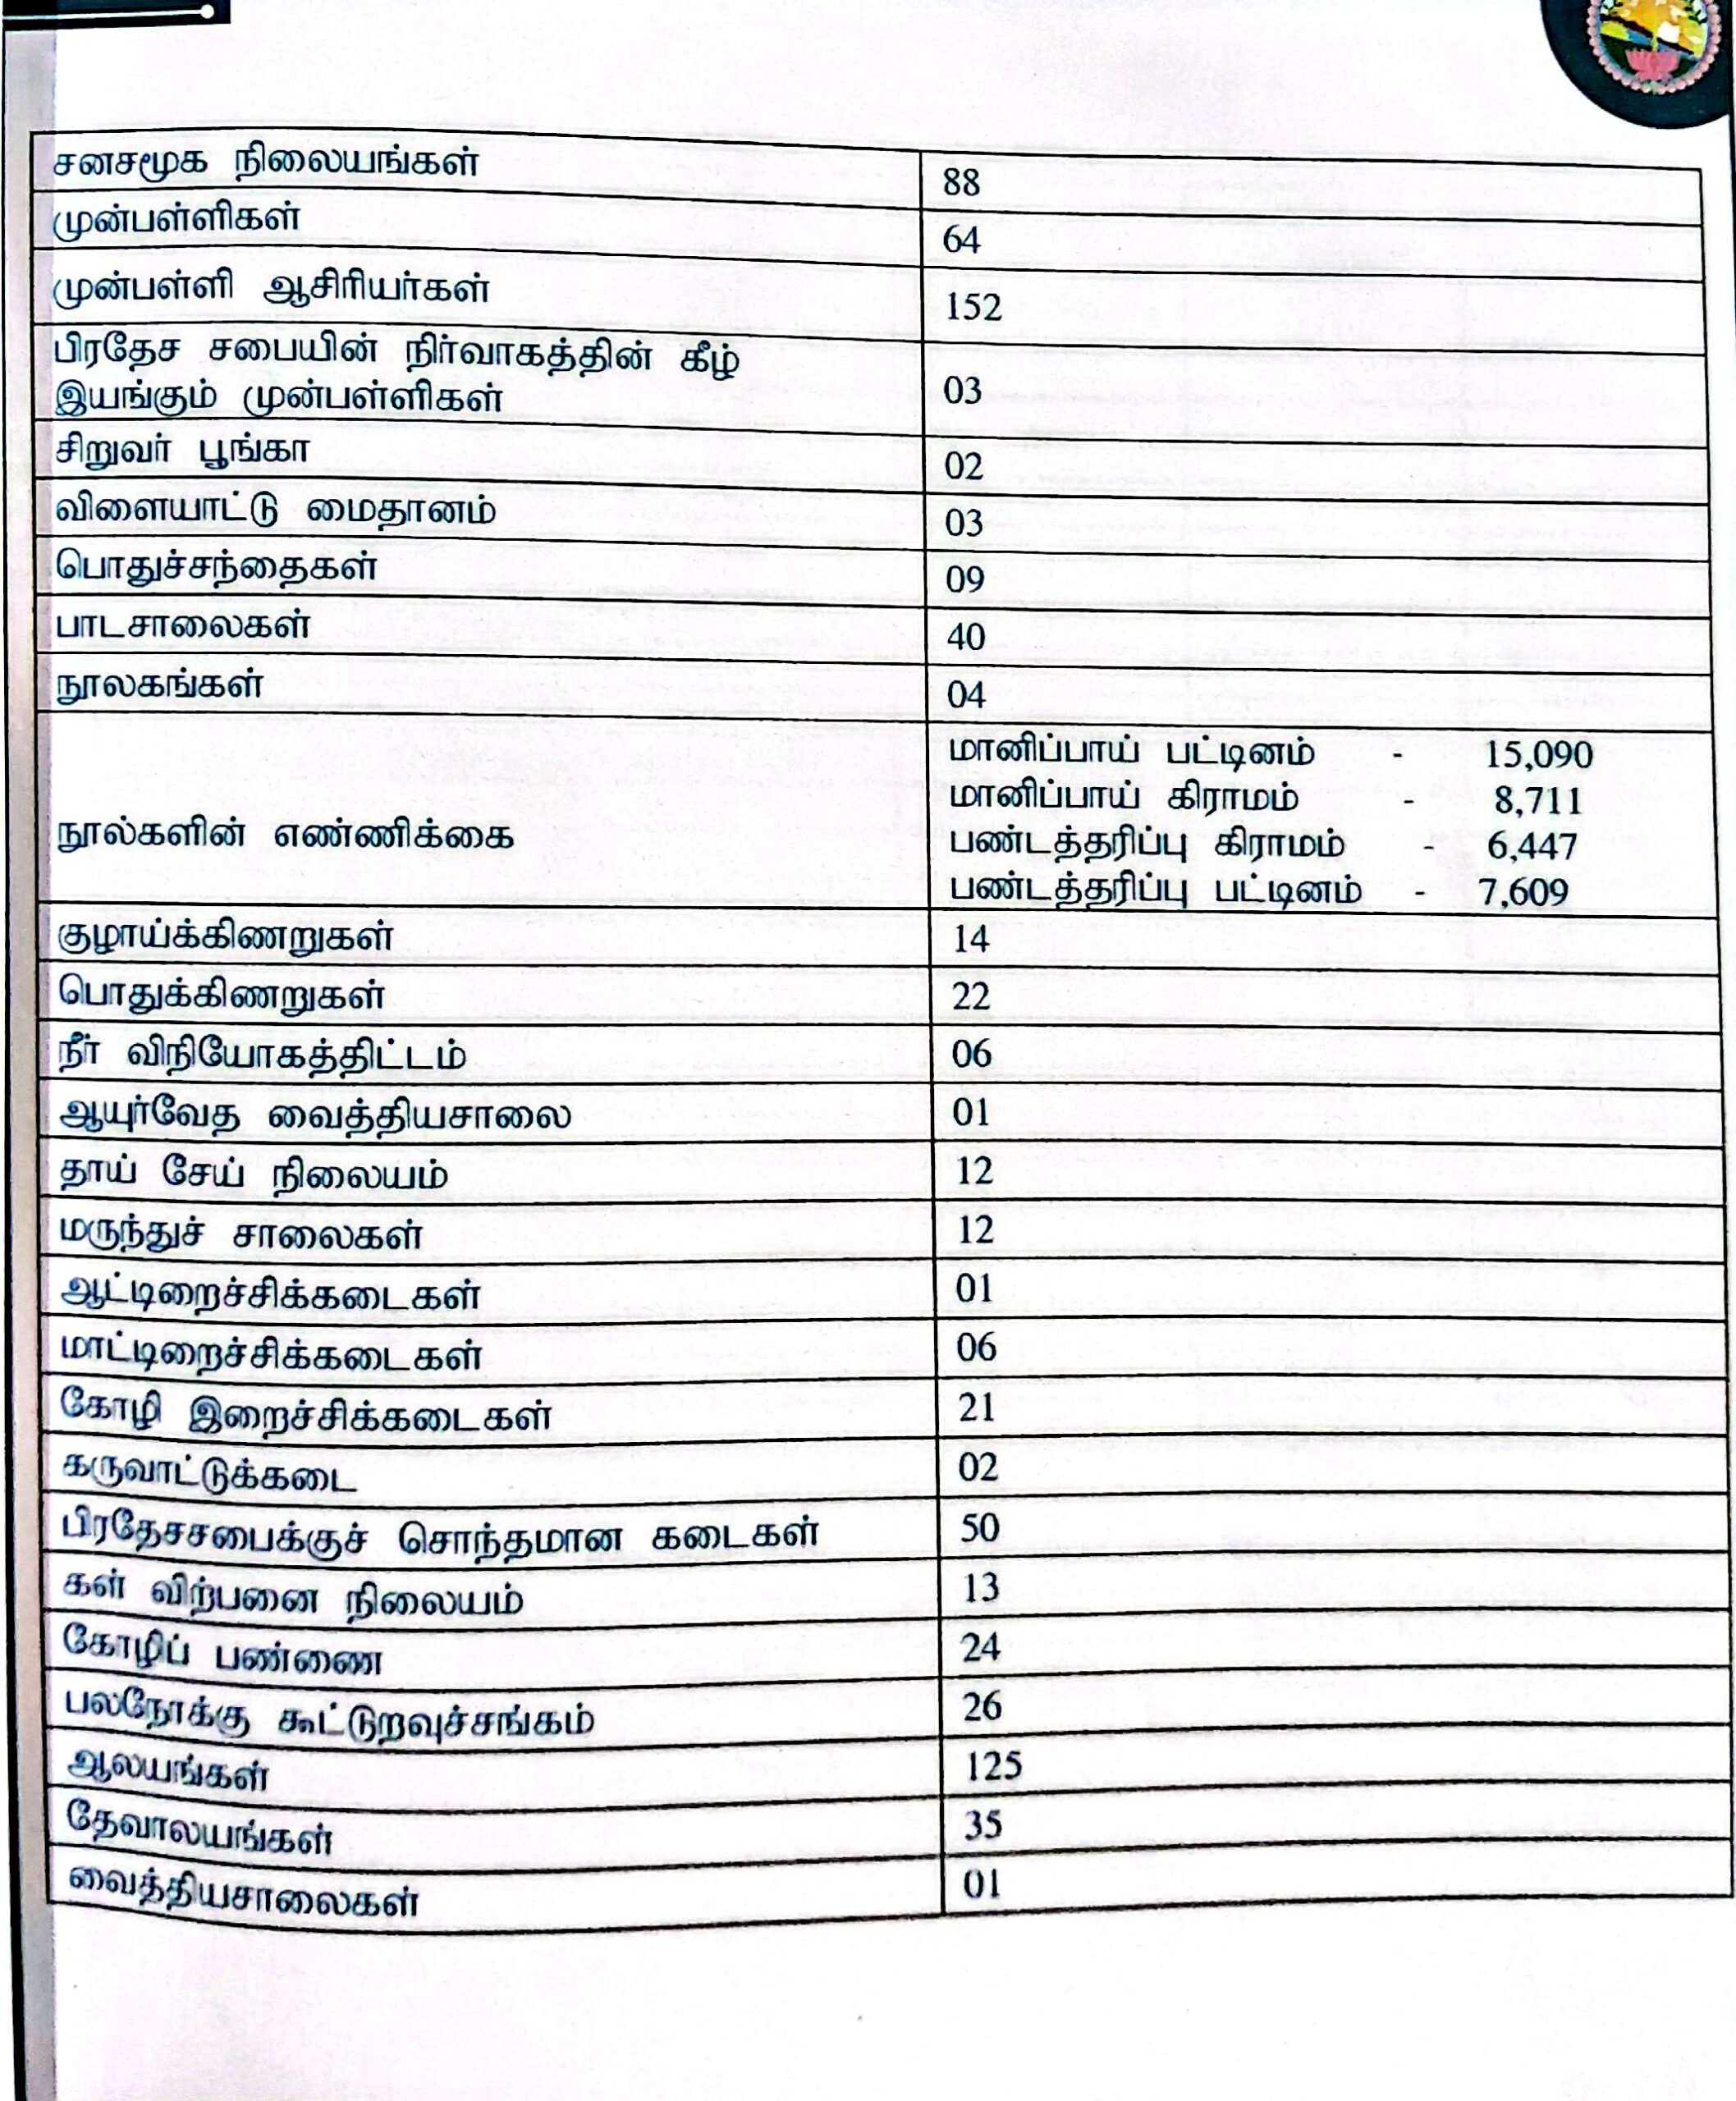 சனசமூக நிலையங்கள் 88
முன்பள்ளிகள் 64
முன்பள்ளி ஆசிரியர்கள் 152
பிரதேச சபையின் நிர்வாகத்தின் கீழ்
இயங்கும் முன்பள்ளிகள் 03
சிறுவர் பூங்கா 02
விளையாட்டு மைதானம் 03
பொதுச்சந்தைகள் 09
பாடசாலைகள் 40
நூலகங்கள் 04
நூல்களின் எண்ணிக்கை
மானிப்பாய் பட்டினம் - 15,090
மானிப்பாய் கிராமம் - 8,711
பண்டத்தரிப்பு கிராமம் - 6,447
பண்டத்தரிப்பு பட்டினம் - 7,609
குழாய்க்கிணறுகள் 14
பொதுக்கிணறுகள் 22
நீர் விநியோகத்திட்டம் 06
ஆயுர்வேத வைத்தியசாலை 01
தாய் சேய் நிலையம் 12
மருந்துச் சாலைகள் 12
ஆட்டிறைச்சிக்கடைகள் 01
மாட்டிறைச்சிக்கடைகள் 06
கோழி இறைச்சிக்கடைகள் 21
கருவாட்டுக்கடை 02
பிரதேசசபைக்குச் சொந்தமான கடைகள் 50
கள் விற்பனை நிலையம் 13
கோழிப் பண்ணை 24
பலநோக்கு கூட்டுறவுச்சங்கம் 26
ஆலயங்கள் 125
தேவாலயங்கள் 35
வைத்தியசாலைகள் 01